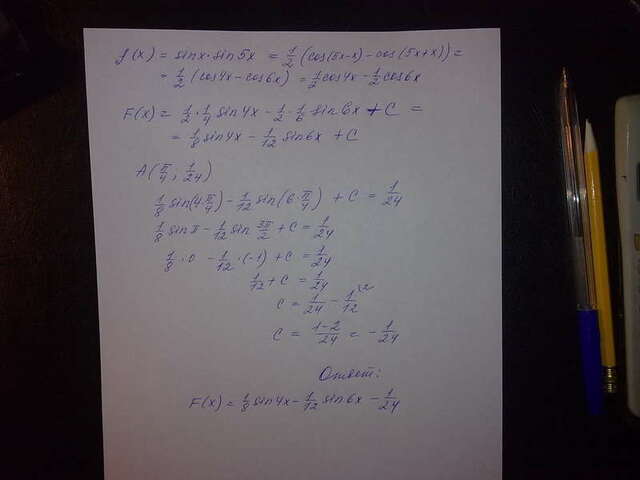 f(x) = sinx·sin5x = 1/2 (cos(5x-x) - cos(5x+x)) =
= 1/2 (cos4x - cos6x) = 1/2 cos4x - 1/2 cos6x
F(x) = 1/2 · 1/4 sin4x - 1/2 · 1/6 sin6x + C =
= 1/8 sin4x - 1/12 sin6x + C
A(π/4 ; 1/24)
1/8 sin(4·π/4) - 1/12 sin(6·π/4) + C = 1/24
1/8 sinπ - 1/12 sin 3π/2 + C = 1/24
1/8 · 0 - 1/12 · (-1) + C = 1/24
1/12 + C = 1/24
C = 1/24 - 1/12 \2
C = 1-2/24 = - 1/24
Ответ:
F(x) = 1/8 sin4x - 1/12 sin6x - 1/24